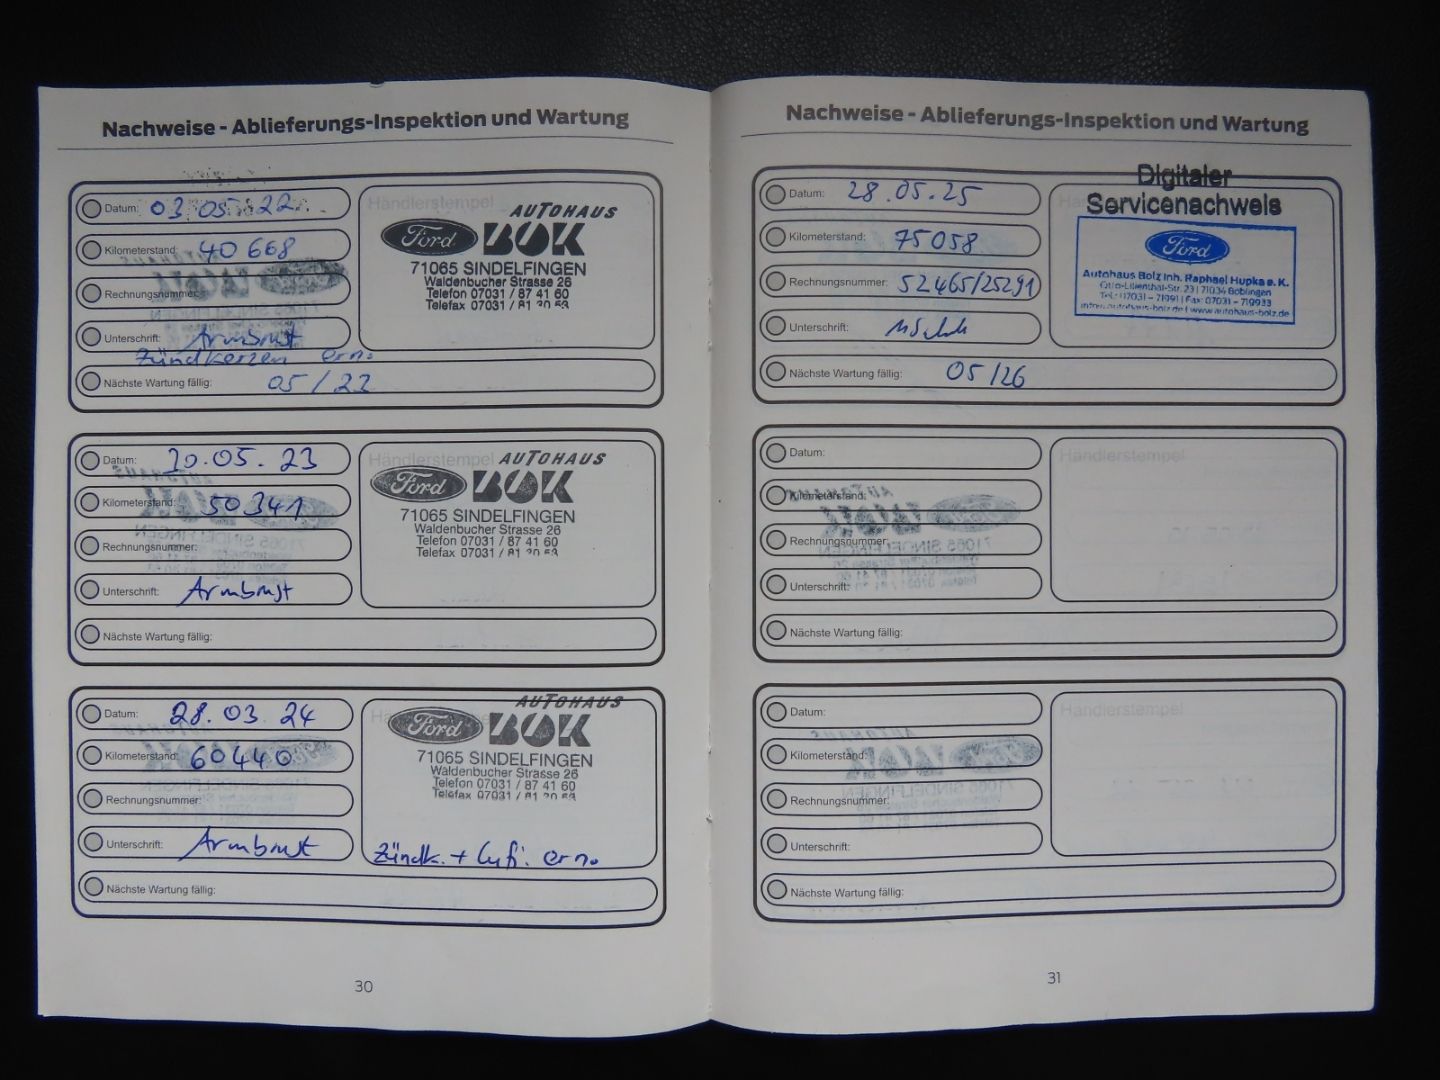 Nachweise - Ablieferungs-Inspektion und Wartung
Datum: 03 05. 22.
Kilometerstand: 40 668
Rechnungsnummer:
Unterschrift: Armbrust
Zündkerzen ern.
Nächste Wartung fällig: 05/23
Händlerstempel
AUTOHAUS
Ford BOK
71065 SINDELFINGEN
Waldenbucher Strasse 26
Telefon 07031 / 87 41 60
Telefax 07031 /
Datum: 20.05.23
Kilometerstand: 50341
Rechnungsnummer:
Unterschrift: Armbrust
Nächste Wartung fällig:
Händlerstempel
AUTOHAUS
Ford BOK
71065 SINDELFINGEN
Waldenbucher Strasse 26
Telefon 07031 / 87 41 60
Telefax 07031 /
Datum: 28.03 24
Kilometerstand: 60440
Rechnungsnummer:
Unterschrift: Armbrust
Nächste Wartung fällig:
AUTOHAUS
Ford BOK
71065 SINDELFINGEN
Waldenbucher Strasse 26
Telefon 07031 / 87 41 60
Telefax 07031 /
Zündk. + Lufi. ern.
30
Nachweise - Ablieferungs-Inspektion und Wartung
Datum: 28.05.25
Kilometerstand: 75058
Rechnungsnummer: 52465/25291
Unterschrift:
Nächste Wartung fällig: 05/26
Digitaler
Servicenachweis
Ford
Autohaus Bolz Inh. Raphael Hupka e. K.
Otto-Lilienthal-Str. 23 | 71034 Böblingen
Tel.: 07031 - 71991 | Fax: 07031 - 719933
info@autohaus-bolz.de | www.autohaus-bolz.de
Datum:
Kilometerstand:
Rechnungsnummer:
Unterschrift:
Nächste Wartung fällig:
Händlerstempel
Datum:
Kilometerstand:
Rechnungsnummer:
Unterschrift:
Nächste Wartung fällig:
Händlerstempel
31